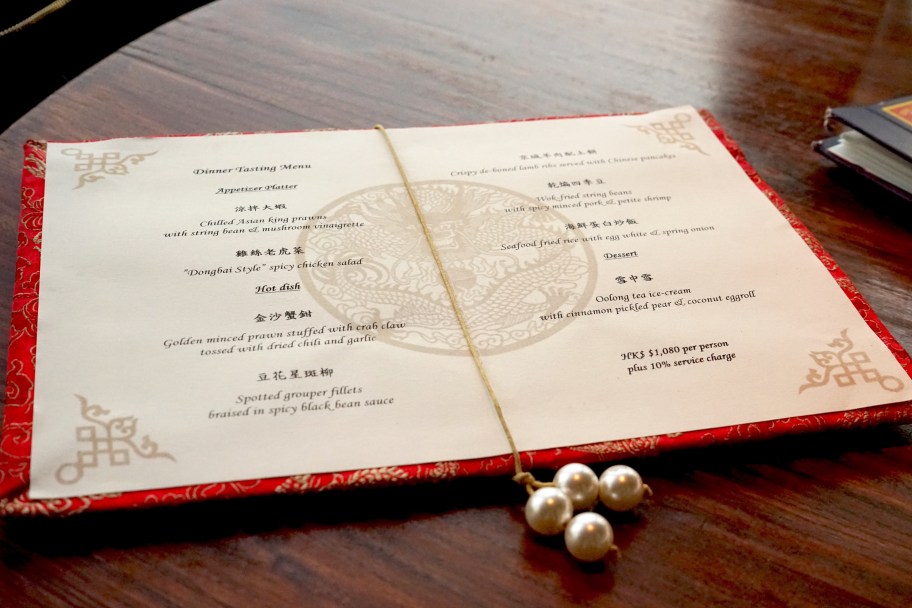 Dinner Tasting Menu
Appetizer Platter
涼拌大蝦
Chilled Asian king prawns
with string bean & mushroom vinaigrette
雞絲老虎菜
"Dongbai Style" spicy chicken salad
Hot dish
金沙蟹鉗
Golden minced prawn stuffed with crab claw
tossed with dried chili and garlic
豆花星斑柳
Spotted grouper fillets
braised in spicy black bean sauce
京城羊肉配上餅
Crispy de-boned lamb ribs served with Chinese pancake
乾煸四季豆
Wok-fried string beans
with spicy minced pork & petite shrimp
海鮮蛋白炒飯
Seafood fried rice with egg white & spring onion
Dessert
雪中雪
Oolong tea ice-cream
with cinnamon pickled pear & coconut eggroll
HK$ $1,080 per person
plus 10% service charge